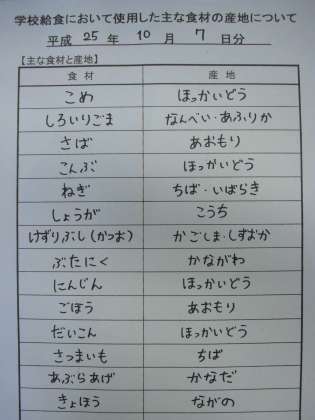 学校給食において使用した主な食材の産地について
平成 25 年 10 月 7 日分
【主な食材と産地】
食材 産地
こめ ほっかいどう
しろいりごま なんべい・あふりか
さば あおもり
こんぶ ほっかいどう
ねぎ ちば・いばらき
しょうが こうち
けずりぶし(かつお) かごしま・しずおか
ぶたにく かながわ
にんじん ほっかいどう
ごぼう あおもり
だいこん ほっかいどう
さつまいも ちば
あぶらあげ かなだ
きょほう ながの